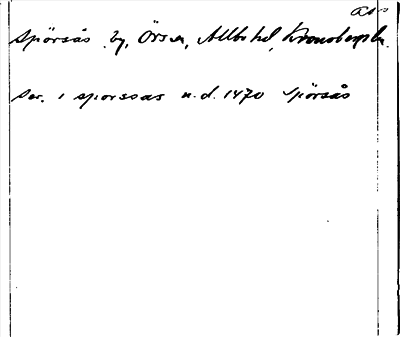 Spörsås by, Örs sn, Allbo hd, Kronobergs ln.
i sporssas u.d. 1470 Spörsås